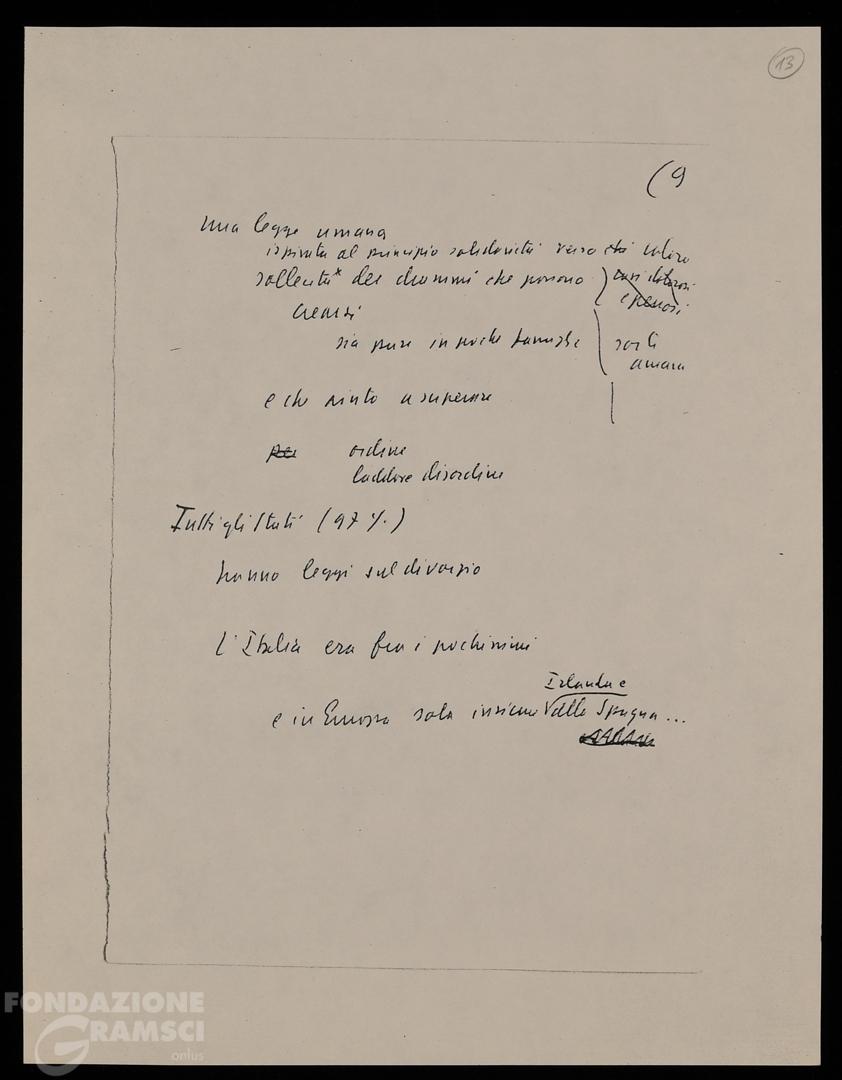 13
(9
una legge umana
ispirata al principio solidarietà verso chi coloro
sollecita* dei drammi che possono ) casi dolorosi
e penosi
crearsi
sia pure in poche famiglie
sorti
amara
e che aiuta a superare
per ordine
laddove disordine
Tutti gli Stati (97 %.)
hanno leggi sul divorzio
l'Italia era fra i pochissimi
Irlanda e
e in Europa sola insieme alla Spagna ...
FONDAZIONE
GRAMSCI
onlus